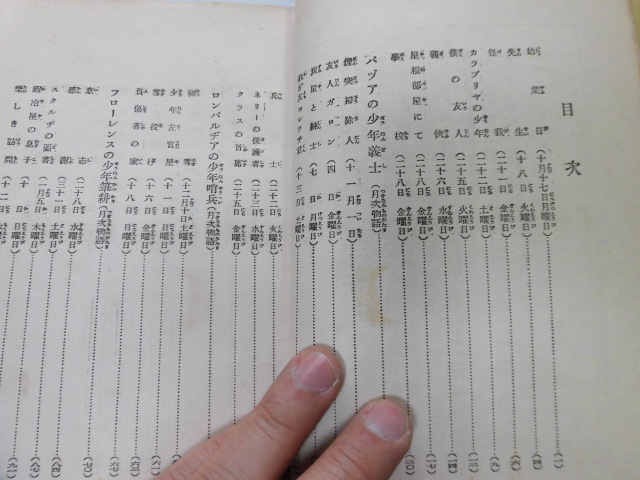 目次
始業日(十月十七日月曜日)(一)
先生(十八日火曜日)(四)
怪我(二十一日金曜日)(六)
カラブリヤの少年(二十二日土曜日)(九)
僕の友人(二十五日火曜日)
義侠(二十六日水曜日)(一四)
屋根部屋にて(二十八日金曜日)(一七)
學校(二十八日金曜日)(二〇)
パヅアの少年義士(月次物語)
煙突掃除人(十一月一日)
友人ガロン(四日金曜日)
炭屋と紳士(七日月曜日)
兵士(二十二日火曜日)
ネリーの保護者(二十三日水曜日)
クラスの首席(二十五日金曜日)
ロンバルヂアの少年哨兵(月次物語)
少年左官屋(十一日日曜日)
雪投げ(十六日金曜日)
負傷者の家(十八日日曜日)
フローレンスの少年筆耕(月次物語)(六七)
意志(二十八日水曜日)(七〇)
感謝(三十一日土曜日)
スタルヂの圖書(八四)
鍛冶屋の息子(一月五日木曜日)(八七)
樂しき訪問(十二日木曜日)(九一)